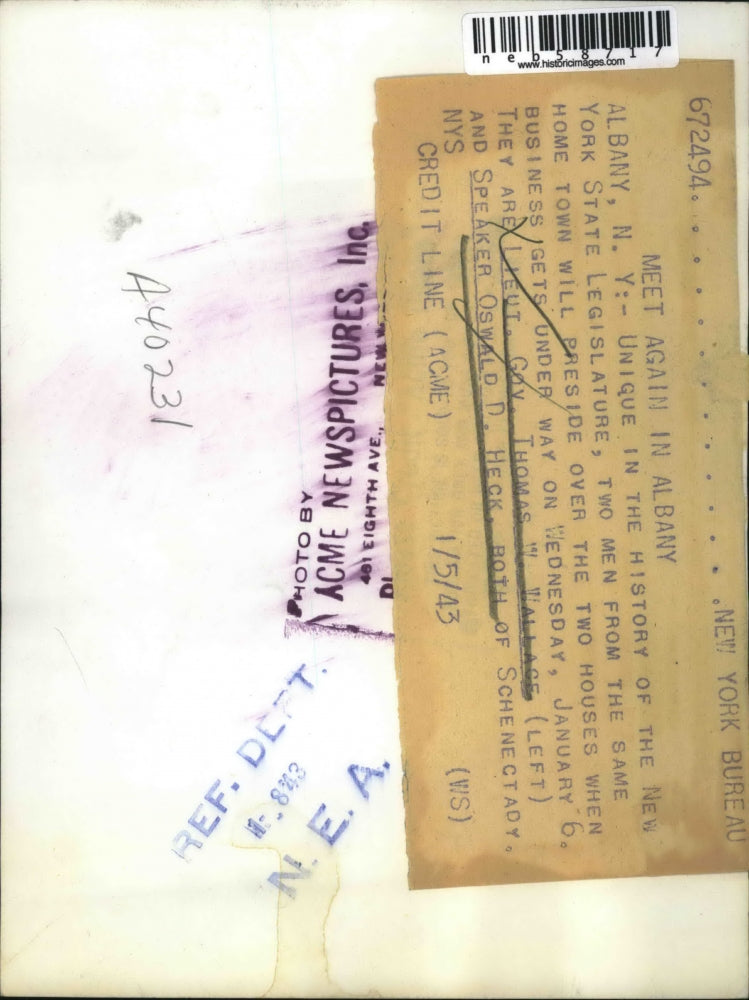 neb58717
www.historicimages.com
672494. . . . . . . . . . . . NEW YORK BUREAU
MEET AGAIN IN ALBANY
ALBANY, N. Y:- UNIQUE IN THE HISTORY OF THE NEW
YORK STATE LEGISLATURE, TWO MEN FROM THE SAME
HOME TOWN WILL PRESIDE OVER THE TWO HOUSES WHEN
BUSINESS GETS UNDER WAY ON WEDNESDAY, JANUARY 6.
THEY ARE LIEUT. GOV. THOMAS W. WALLACE (LEFT)
AND SPEAKER OSWALD D. HECK, BOTH OF SCHENECTADY.
NYS
CREDIT LINE (ACME) 1/5/43 (WS)
PHOTO BY
ACME NEWSPICTURES, Inc.
461 EIGHTH AVE., NEW
A40231
REF. DEPT.
N. E. A.